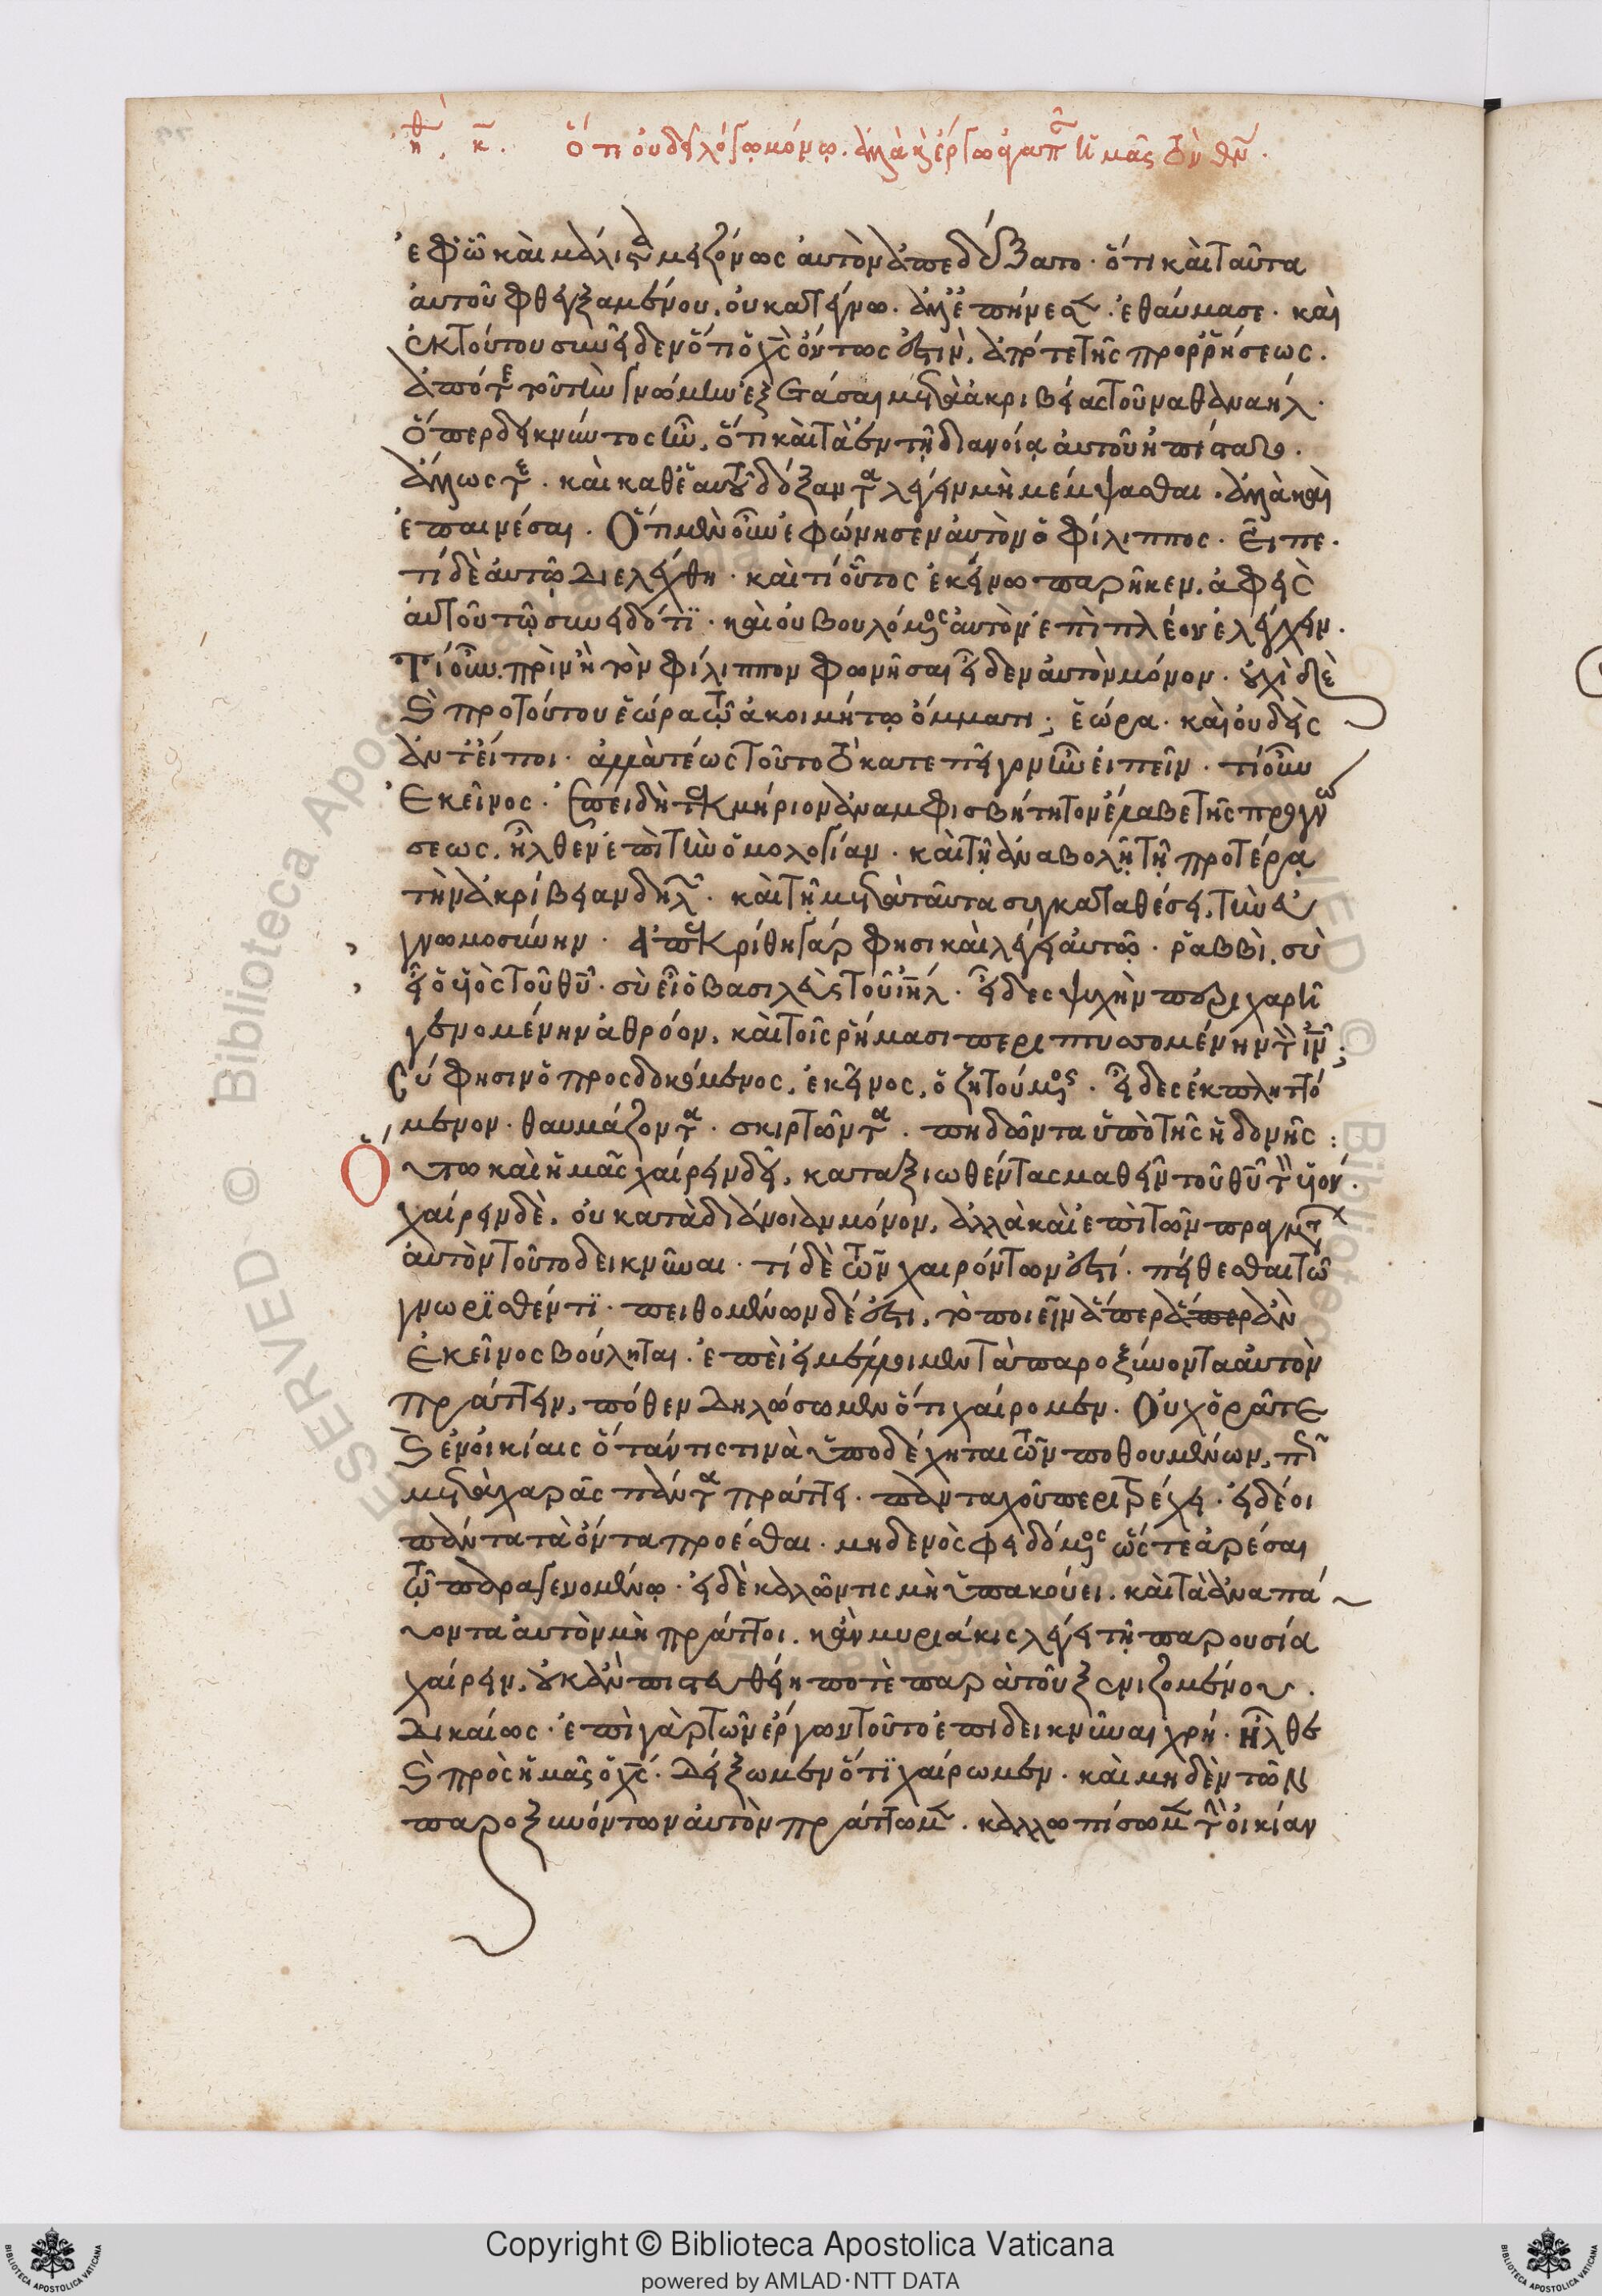 ὅτι οὐ δεῖ λόγῳ μόνῳ. ἀλλὰ καὶ ἔργῳ ἀγαπᾶν ἡμᾶς τὸν θν.
ἐφ' ᾧ καὶ μάλιστα μειζόνως αὐτὸν ἀπεδέξατο · ὅτι καὶ ταῦτα
αὐτοῦ φθεγξαμένου, οὐ κατέγνω. ἀλλ' ἐπήνεσε. ἐθαύμασε. καὶ
ἐκ τούτου συνεῖδεν ὅτι ὁ χς ὄντως ἐστὶν, ἀπό τε τῆς προρρήσεως.
ἀπό τε τοῦ τὴν γνώμην ἐξετάσαι μετὰ ἀκριβείας τοῦ ναθαναήλ.
ὅπερ δεικνύντος ἦν, ὅτι καὶ τὰ ἐν τῇ διανοίᾳ αὐτοῦ ἠπίστατο.
ἄλλως τε. καὶ καθ' ἑαυτοῦ δόξαντα λέγειν μὴ μέμψασθαι. ἀλλὰ καὶ
ἐπαινέσαι. Ὅτι μὲν οὖν ἐφώνησεν αὐτὸν ὁ φίλιππος. εἶπε.
τί δὲ αὐτῷ διελέχθη. καὶ τί οὗτος ἐκείνῳ παρῆκεν, ἀφεὶς
αὐτοῦ τῷ συνειδότι. καὶ οὐ βουλόμενος αὐτὸν ἐπὶ πλέον ἐλέγχειν.
Τί οὖν. πρὶν ἢ τὸν φίλιππον φωνῆσαι εἶδεν αὐτὸν μόνον. οὐχὶ δὲ
καὶ πρὸ τούτου ἑώρα τῷ ἀκοιμήτῳ ὄμματι; ἑώρα. καὶ οὐδεὶς
ἀντείποι. ἀλλὰ τέως τοῦτο ὃ κατεπεῖγον ἦν εἰπεῖν. τί οὖν
Ἐκεῖνος. Ἐπειδὴ τεκμήριον ἀναμφισβήτητον ἔλαβε τῆς προγνώ
σεως, ἦλθεν ἐπὶ τὴν ὁμολογίαν. καὶ τῇ ἀναβολῇ τῇ προτέρᾳ
τὴν ἀκρίβειαν δηλῶν. καὶ τῇ μετὰ ταῦτα συγκαταθέσει, τὴν εὐ
γνωμοσύνην. ἀπεκρίθη γάρ φησι καὶ λέγει αὐτῷ. ῥαββὶ, σὺ
εἶ ὁ υἱὸς τοῦ θυ. σὺ εἶ ὁ βασιλεὺς τοῦ ιηλ. εἶδες ψυχὴν περιχαρῆ
γενομένην ἀθρόον, καὶ τοῖς ῥήμασι περιπτυσσομένην τὸν ιν;
Σύ φησιν ὁ προσδοκώμενος, ἐκεῖνος, ὁ ζητούμενος. εἶδες ἐκπληττό
μενον. θαυμάζοντα. σκιρτῶντα. πηδῶντα ὑπὸ τῆς ἡδονῆς:
Οὕτω καὶ ἡμᾶς χαίρειν δεῖ, καταξιωθέντας μαθεῖν τοῦ θυ τὸν υἱόν.
χαίρειν δὲ, οὐ κατὰ διάνοιαν μόνον, ἀλλὰ καὶ ἐπὶ τῶν πραγμάτων
αὐτὸν τοῦτο δεικνύναι. τί δὲ τῶν χαιρόντων ἐστί. πείθεσθαι τῷ
γνωρισθέντι. πειθομένων δέ ἐστι, τὸ ποιεῖν ἅπερ ἅπερ ἂν
Ἐκεῖνος βούληται. ἐπεὶ εἰ μέλλοιμεν τὰ παροξύνοντα αὐτὸν
πράττειν, πόθεν δηλώσωμεν ὅτι χαίρομεν. Οὐχ ὁρᾶτε
καὶ ἐν οἰκίαις ὅταν τίς τινὰ ὑποδέχηται τῶν ποθουμένων, πῶς
μετὰ χαρᾶς πάντα πράττει. πανταχοῦ περιτρέχει. εἰ δέοι
πάντα τὰ ὄντα προέσθαι. μηδενὸς φειδόμενος ὥστε ἀρέσαι
τῷ παραγενομένῳ. εἰ δὲ καλῶν τις μὴ ὑπακούει. καὶ τὰ ἀναπαύ
οντα αὐτὸν μὴ πράττοι. κἂν μυριάκις λέγει τῇ παρουσία
χαίρειν, οὐκ ἂν πιστευθείη ποτὲ παρὰ τοῦ ξενιζομένου.
Δικαίως. ἐπὶ γὰρ τῶν ἔργων τοῦτο ἐπιδεικνύναι χρή. Ἦλθε
καὶ πρὸς ἡμᾶς ὁ χς. Δείξωμεν ὅτι χαίρωμεν. καὶ μηδὲν τῶν
παροξυνόντων αὐτὸν πράττωμεν. καλλωπίσωμεν τὴν οἰκίαν
Copyright © Biblioteca Apostolica Vaticana
powered by AMLAD·NTT DATA